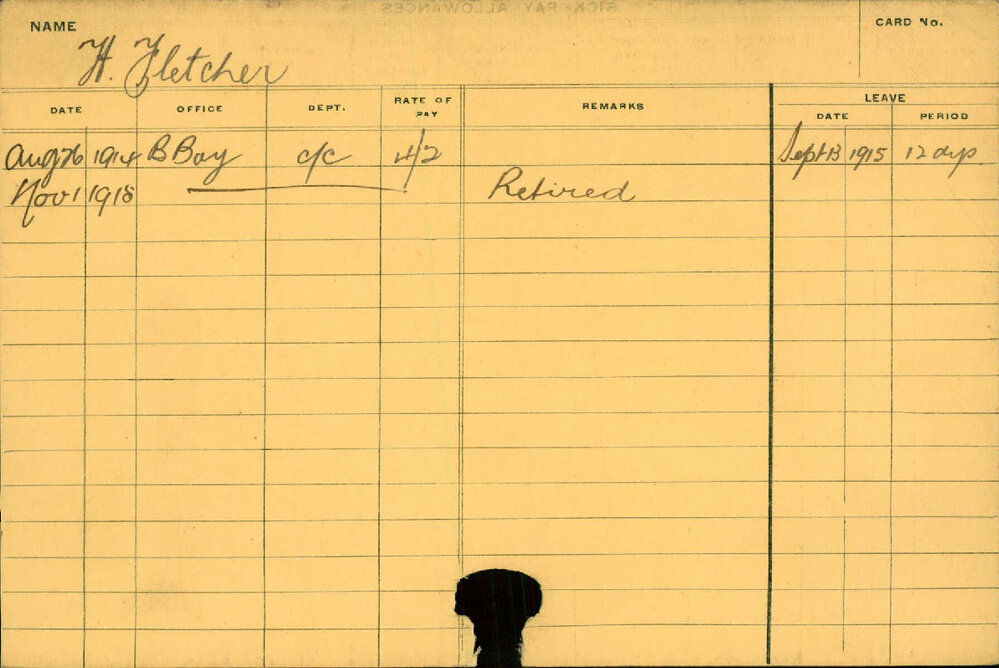 SICK PAY ALLOWANCES
NAME
CARD No.
H. Fletcher
DATE OFFICE DEPT. RATE OF PAY REMARKS LEAVE
DATE PERIOD
Aug 26 1914 B Bay c/c 4/2 Sept 13 1915 12 dys
Nov 1 1918 Retired